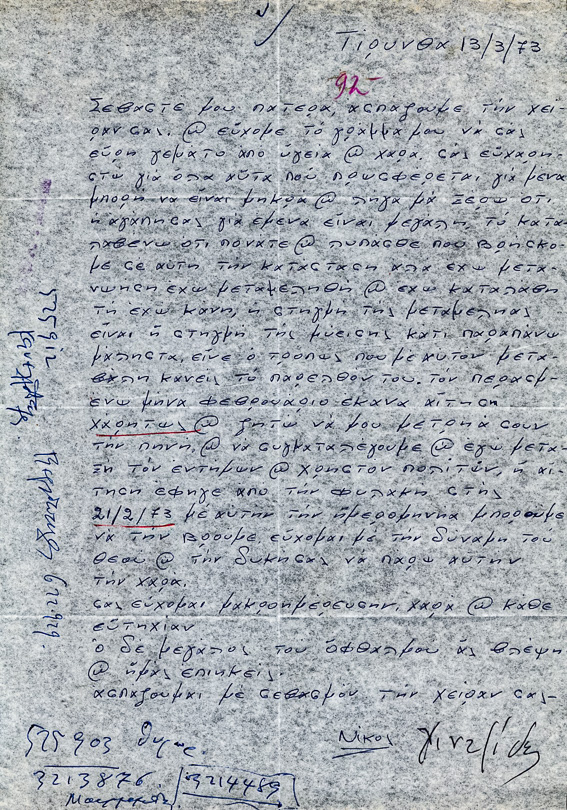 Τίρυνθα 13/3/73
92-
Σεβαστε μου πατερα, ασπαζουμε την χει-
ραν σας. @ εὔχομε το γραμμα μου νὰ σας
εὔρη γεματο απο ὑγεια @ χαρα. σας εὐχαρη-
στω για ολα αὔτα ποὺ προσφερεται για μενα
μπορη να ειναι μηκρα @ ληγα μα ξεσω οτι
η αγαπησας για εμενα ειναι μεγαλη. Τὸ κατα-
λαβενω οτι πονατε @ λυπασθε ποὺ βρησκο-
με σε αυτη την κατασταση αλα εχω μετα-
νωηση εχω μεταμεληθη @ εχω καταλαβη
τη εχω κανη, η στηγμη της μεταμεληας
ειναι ἡ στηγμη της μυεισης κατι παραπανω
μαλησTα, εἰνε ο τροπως που με αυτον μετα-
βαλη κανεις το παρελθον του. Τον περασμ-
ενω μηνα φεβρουαριο εκανα αιτηση
χαρητως @ ζητω να μου μετρηασουν
την πηνη, @ να συγκαταλεγουμε @ εγω μετα-
ξη τον εντημων @ χρηστον πολιτων, η αι-
τηση εφηγε απο την φυλακη στης
21/2/73 με αυτην την ημερομηνηα μπορουμε
να την βρουμε εὐχομαι με την δυναμη του
θεου @ την δυκησας να παρω αυτην
την χαρα.
σας εὐχομαι μακροημερευσην, χαρα @ καθε
ευτηχιαν
ο δε μεγαλος του ὀφθαλμου ἀς βλεψη
@ ημας επιηκεις.
ασπαζουμαι με σεβασμον την χειραν σας-
Νικος
525903
3213876
3214489
5259112
672929.